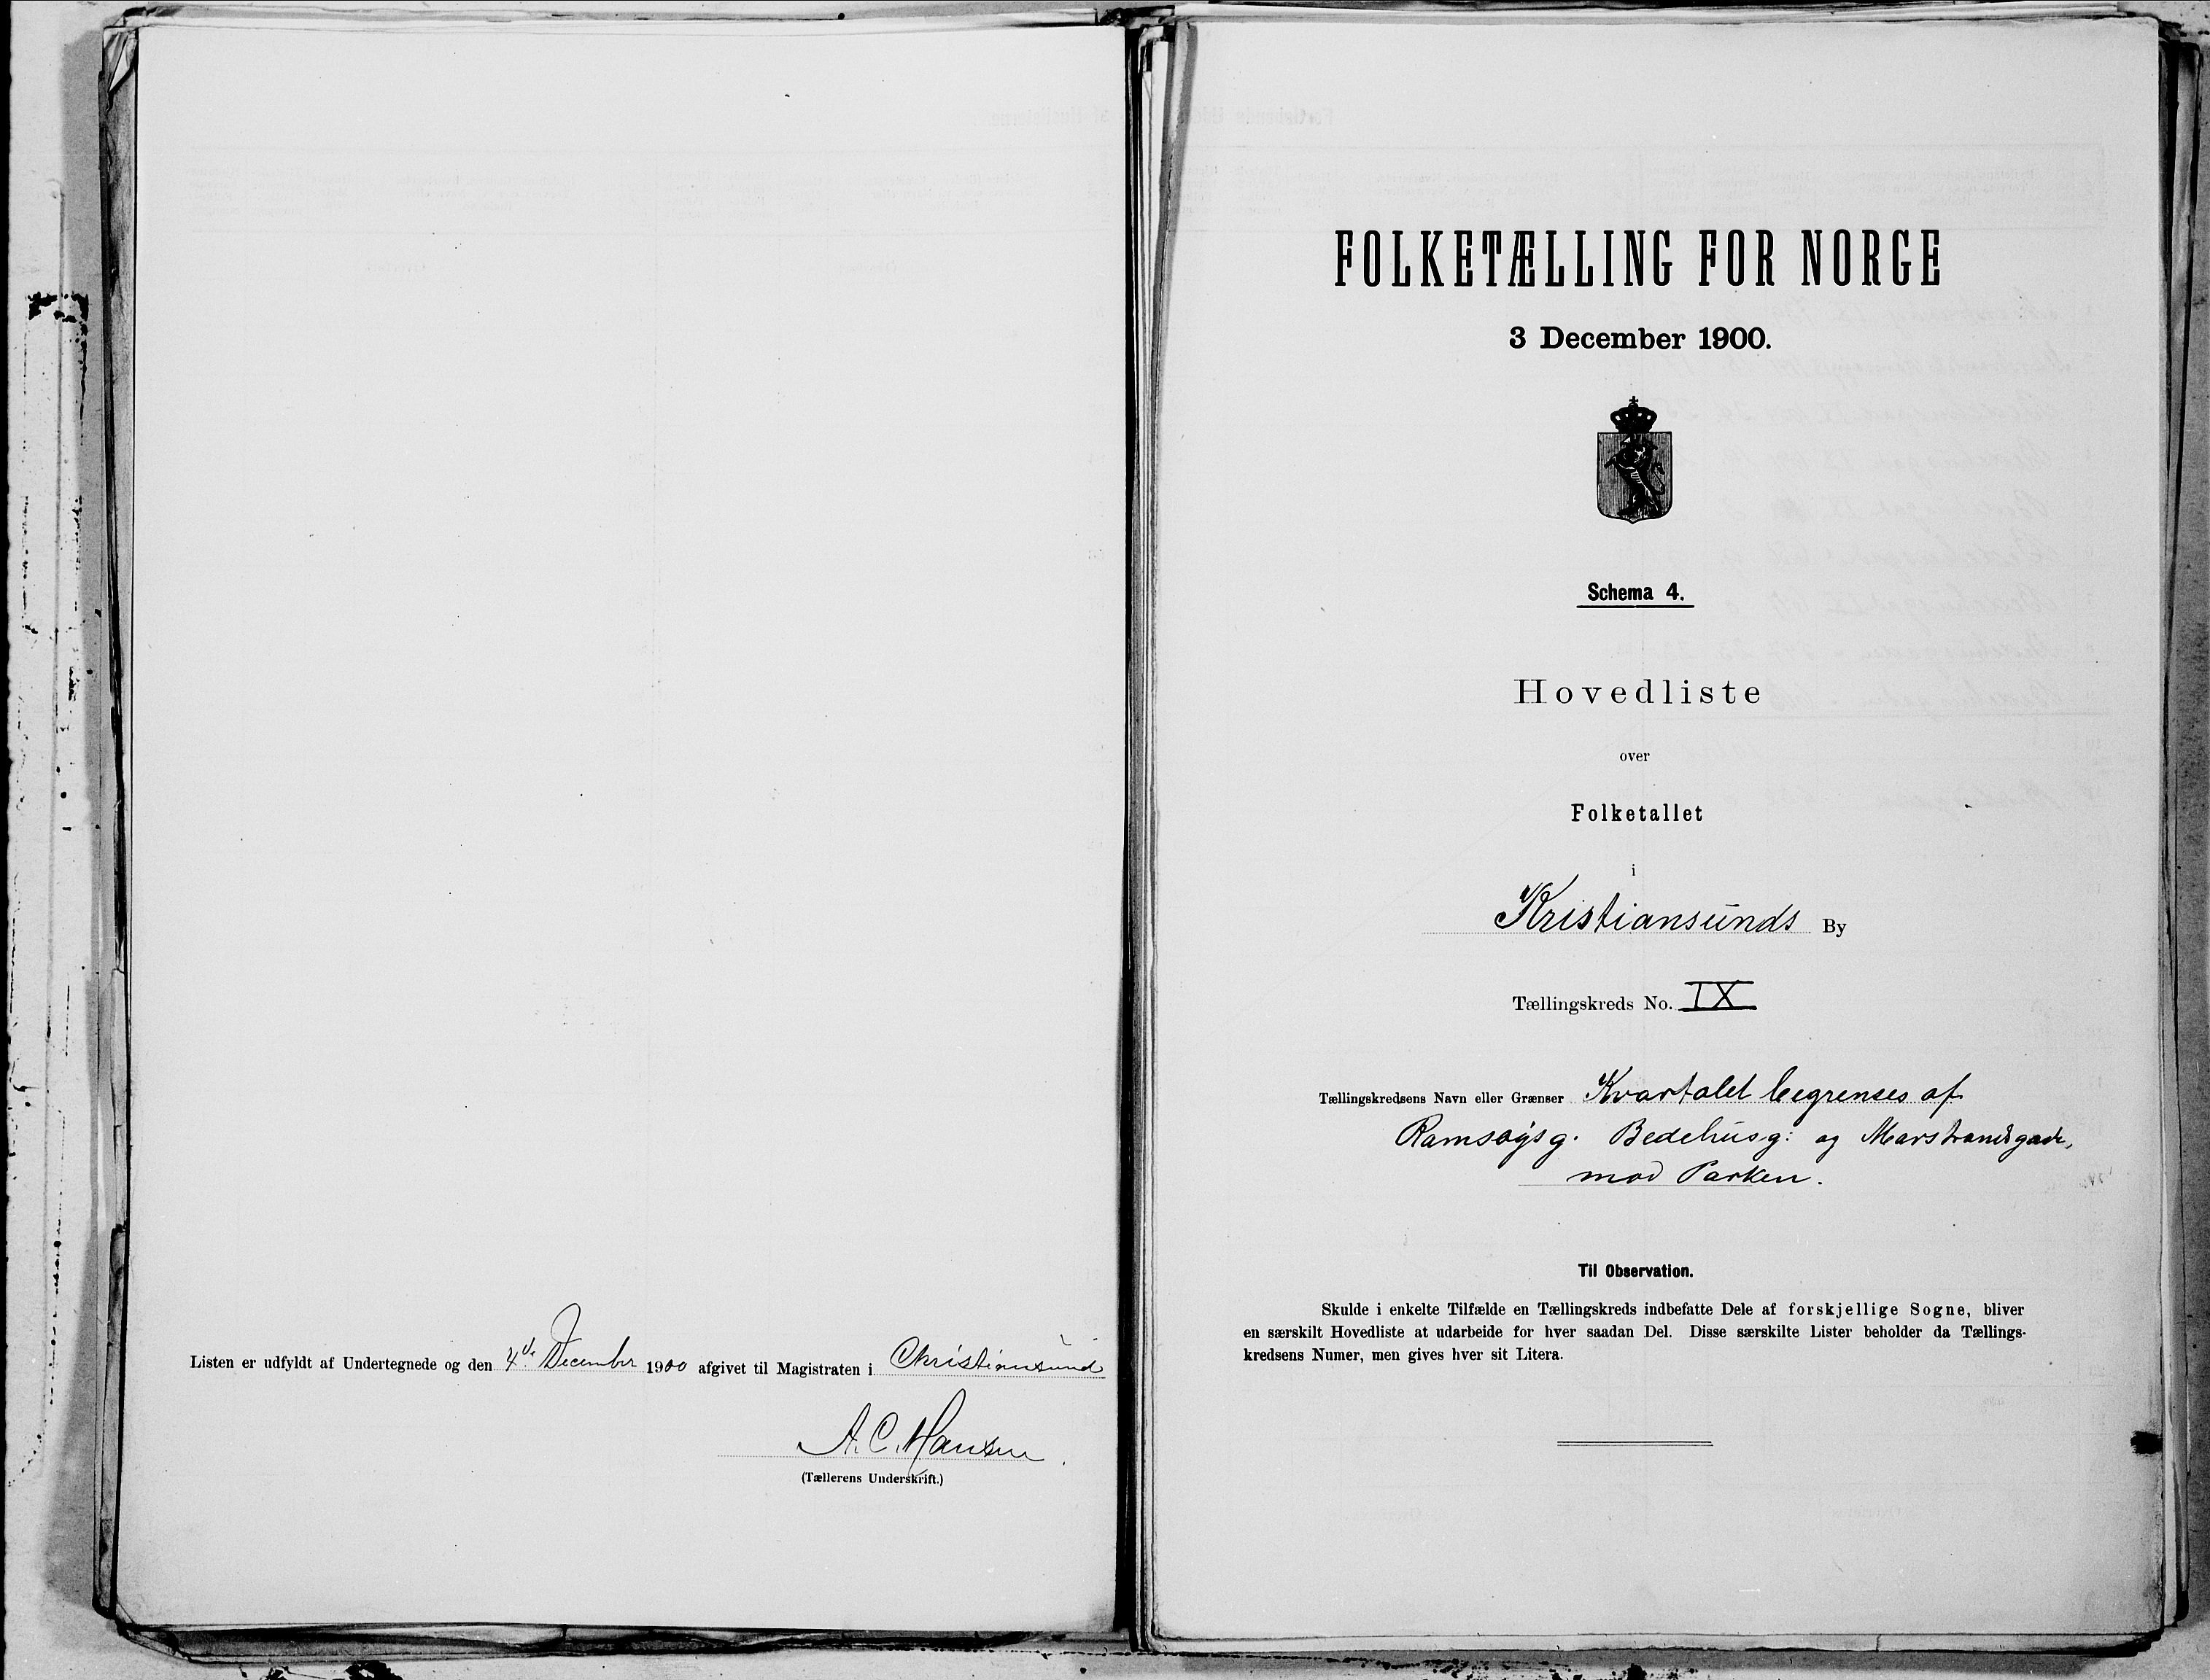 Listen er udfyldt af Undertegnede og den 4de December 1900 afgivet til Magistraten i Christiansund
A. C. Hansen
(Tællerens Underskrift.)
FOLKETÆLLING FOR NORGE
3 December 1900.
Schema 4.
Hovedliste
over
Folketallet
i
Kristiansunds By
Tællingskreds No. IX
Tællingskredsens Navn eller Grænser Kvartalet begrenses af
Ramsøysg. Bedehusg: og Marstrandsgade,
mod Parken.
Til Observation.
Skulde i enkelte Tilfælde en Tællingskreds indbefatte Dele af forskjellige Sogne, bliver
en særskilt Hovedliste at udarbeide for hver saadan Del. Disse særskilte Lister beholder da Tællings-
kredsens Numer, men gives hver sit Litera.